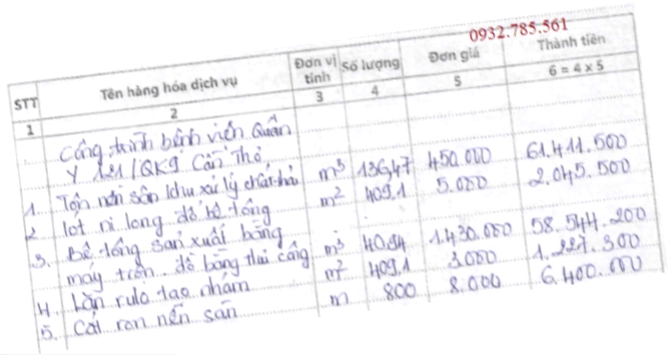 0932.785.561
STT Tên hàng hóa dịch vụ Đơn vị tính Số lượng Đơn giá Thành tiền
1 2 3 4 5 6 = 4 x 5
Công trình bệnh viện Quân
Y 121/QK9 Cần Thơ,
1. Tôn nền sân khu xử lý chất thải m³ 136,47 450.000 61.411.500
2 lót ni long đổ bê tông m² 409,1 5.000 2.045.500
3. Bê tông sản xuất bằng
máy trộn đổ bằng thủ công m³ 40,94 1.430.000 58.544.200
4. Lăn rulo tạo nhám m² 409,1 3.000 1.227.300
5. Cắt ron nền sân m 800 8.000 6.400.000